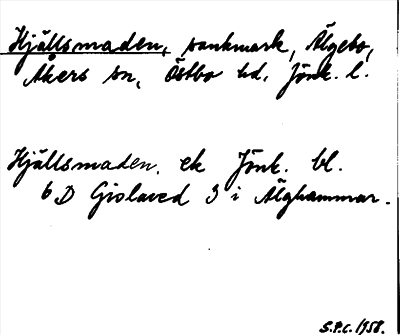 Hjällsmaden, sankmark, Älgebo,
Åkers sn, Östbo hd, Jönk. l.
Hjällsmaden. ek Jönk. bl.
6 D Gislaved 3 i Älghammar.
S.P.C. 1958.